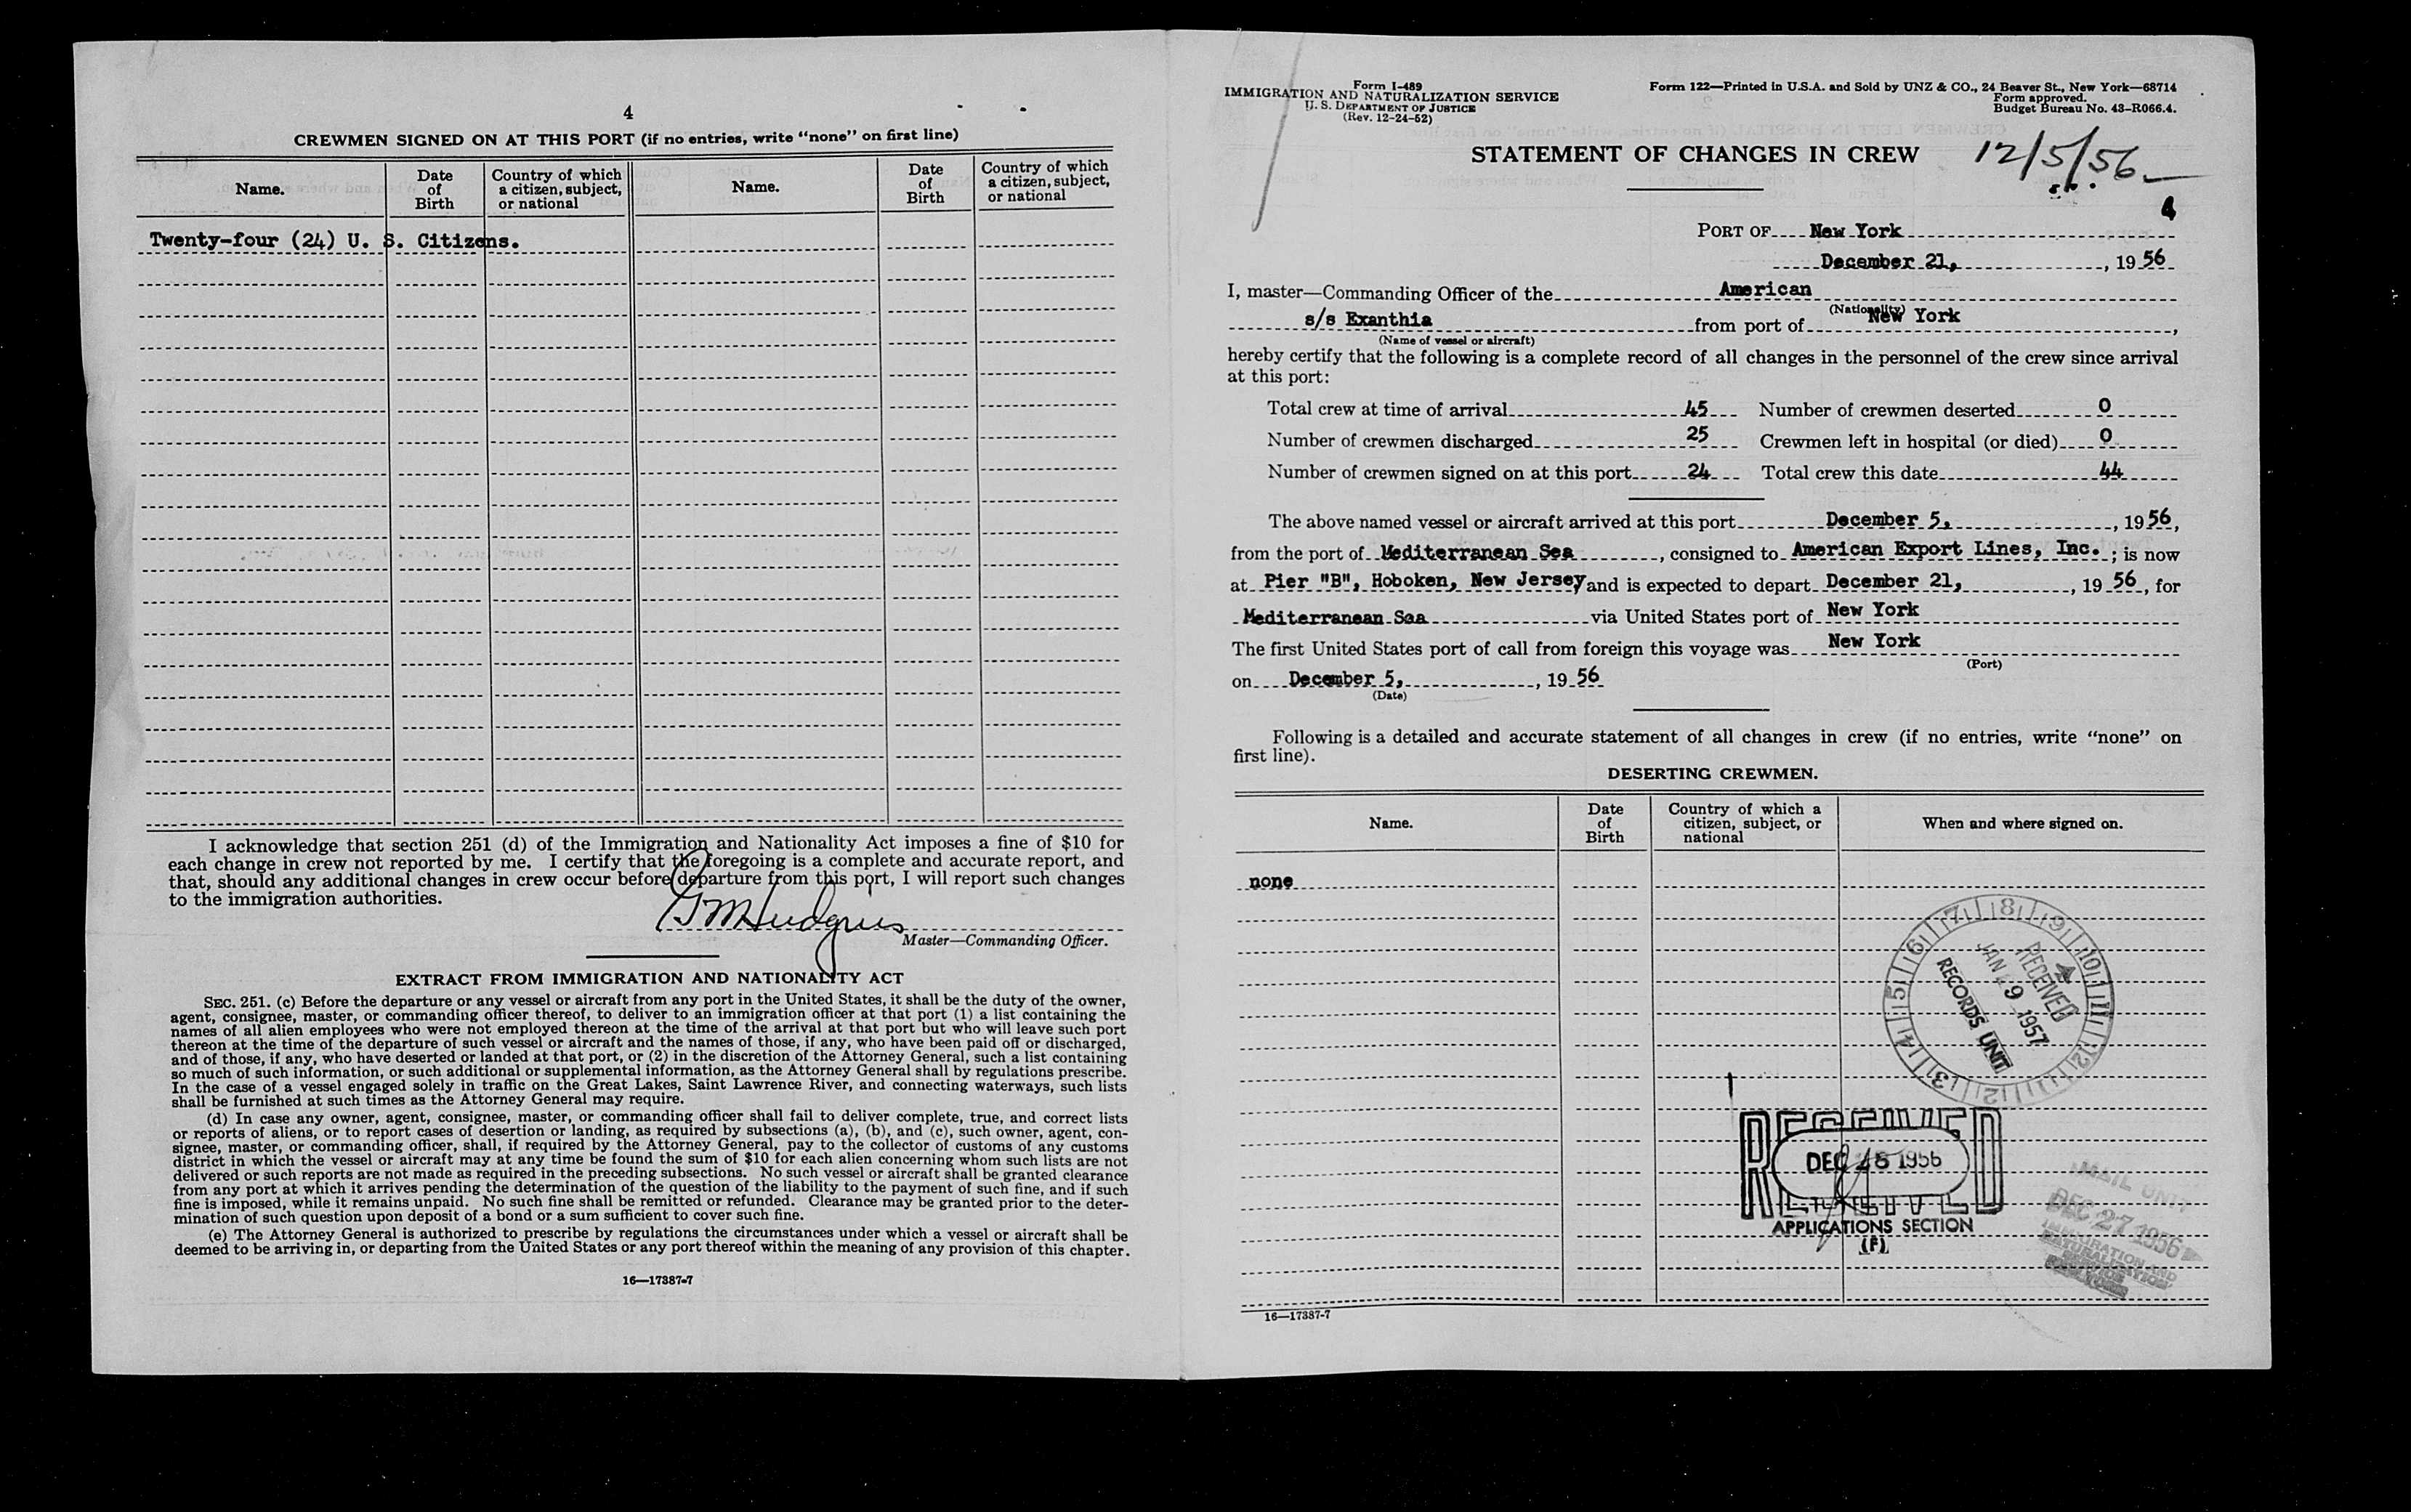 4
CREWMEN SIGNED ON AT THIS PORT (if no entries, write “none” on first line)
Name.
Date of Birth
Country of which a citizen, subject, or national
Name.
Date of Birth
Country of which a citizen, subject, or national
Twenty-four (24) U. S. Citizens.
I acknowledge that section 251 (d) of the Immigration and Nationality Act imposes a fine of $10 for
each change in crew not reported by me. I certify that the foregoing is a complete and accurate report, and
that, should any additional changes in crew occur before departure from this port, I will report such changes
to the immigration authorities.
G M Hudgins
Master—Commanding Officer.
EXTRACT FROM IMMIGRATION AND NATIONALITY ACT
SEC. 251. (c) Before the departure or any vessel or aircraft from any port in the United States, it shall be the duty of the owner,
agent, consignee, master, or commanding officer thereof, to deliver to an immigration officer at that port (1) a list containing the
names of all alien employees who were not employed thereon at the time of the arrival at that port but who will leave such port
thereon at the time of the departure of such vessel or aircraft and the names of those, if any, who have been paid off or discharged,
and of those, if any, who have deserted or landed at that port, or (2) in the discretion of the Attorney General, such a list containing
so much of such information, or such additional or supplemental information, as the Attorney General shall by regulations prescribe.
In the case of a vessel engaged solely in traffic on the Great Lakes, Saint Lawrence River, and connecting waterways, such lists
shall be furnished at such times as the Attorney General may require.
(d) In case any owner, agent, consignee, master, or commanding officer shall fail to deliver complete, true, and correct lists
or reports of aliens, or to report cases of desertion or landing, as required by subsections (a), (b), and (c), such owner, agent, con-
signee, master, or commanding officer, shall, if required by the Attorney General, pay to the collector of customs of any customs
district in which the vessel or aircraft may at any time be found the sum of $10 for each alien concerning whom such lists are not
delivered or such reports are not made as required in the preceding subsections. No such vessel or aircraft shall be granted clearance
from any port at which it arrives pending the determination of the question of the liability to the payment of such fine, and if such
fine is imposed, while it remains unpaid. No such fine shall be remitted or refunded. Clearance may be granted prior to the deter-
mination of such question upon deposit of a bond or a sum sufficient to cover such fine.
(e) The Attorney General is authorized to prescribe by regulations the circumstances under which a vessel or aircraft shall be
deemed to be arriving in, or departing from the United States or any port thereof within the meaning of any provision of this chapter.
16—17387-7
Form I-489
IMMIGRATION AND NATURALIZATION SERVICE
U. S. DEPARTMENT OF JUSTICE
(Rev. 12-24-52)
Form 122—Printed in U.S.A. and Sold by UNZ & CO., 24 Beaver St., New York—68714
Form approved.
Budget Bureau No. 43-R066.4.
STATEMENT OF CHANGES IN CREW
12/5/56
4
PORT OF New York
December 21, , 19 56
I, master—Commanding Officer of the American
(Nationality)
s/s Exanthia from port of New York ,
(Name of vessel or aircraft)
hereby certify that the following is a complete record of all changes in the personnel of the crew since arrival
at this port:
Total crew at time of arrival 45 Number of crewmen deserted 0
Number of crewmen discharged 25 Crewmen left in hospital (or died) 0
Number of crewmen signed on at this port 24 Total crew this date 44
The above named vessel or aircraft arrived at this port December 5, , 19 56,
from the port of Mediterranean Sea , consigned to American Export Lines, Inc. ; is now
at Pier "B", Hoboken, New Jersey and is expected to depart December 21, , 19 56 , for
Mediterranean Sea via United States port of New York
The first United States port of call from foreign this voyage was New York
(Port)
on December 5, , 19 56
(Date)
Following is a detailed and accurate statement of all changes in crew (if no entries, write “none” on
first line).
DESERTING CREWMEN.
Name.
Date of Birth
Country of which a citizen, subject, or national
When and where signed on.
none
RECEIVED
JAN 9 1957
RECORDS UNIT
RECEIVED
DEC 28 1956
APPLICATIONS SECTION
(F)
MAIL UNIT
DEC 27 1956
IMMIGRATION AND
NATURALIZATION
16—17387-7